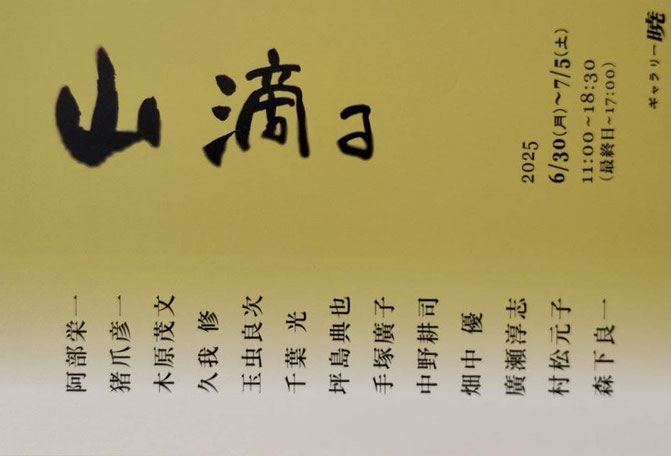 山滴る
2025
6/30(月)～7/5(土)
11:00～18:30
(最終日～17:00)
ギャラリー暁
阿部栄一
猪爪彦一
木原茂文
久我 修
玉虫良次
千葉 光
坪島典也
手塚廣子
中野耕司
畑中 優
廣瀬淳志
村松元子
森下良一